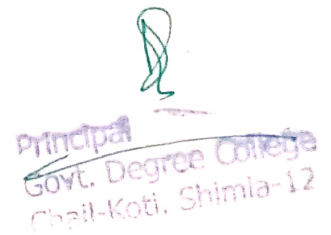 Principal
Govt. Degree College
Chail-Koti, Shimla-12